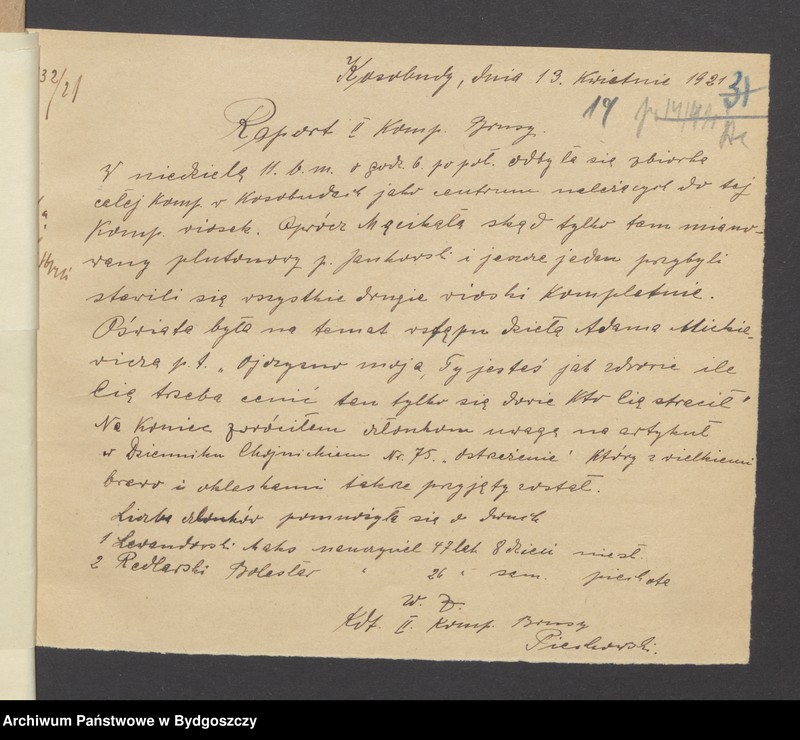 32/21
Kosobudy, dnia 13. Kwietnie 1921
31
14
Raport II Komp. Brusy.
W niedzielę 11. b. m. o godz. 6. po poł. odbyła się zbiórka
całej Komp. w Kosobudach jako centrum należących do tej
Komp. wiosek. Oprócz Męcikała skąd tylko tam miano-
wany plutonowy p. Jankowski i jeszcze jeden przybyli
stawili się wszystkie drugie wioski Kompletnie.
Oświata była na temat wstępu dzieła Adama Mickie-
wicza p. t. „Ojczyzno moja, Ty jesteś jak zdrowie ile
Cię trzeba cenić ten tylko się dowie Kto Cię stracił"
Na Koniec zwróciłem członkom uwagę na artykuł
w Dzienniku Chojnickiem Nr. 75. „Ostrzeżenie" Który z wielkiemi
brawo i oklaskami także przyjęty został.
Liczba członków pomnożyła się o dwuch
1 Lewandowski Maks nauczyciel 47 lat 8 dzieci
2 Redlarski Bolesław " 26 " sem. piechota
w. z.
Kdt. II. Komp. Brusy
Piechowski.
Archiwum Państwowe w Bydgoszczy